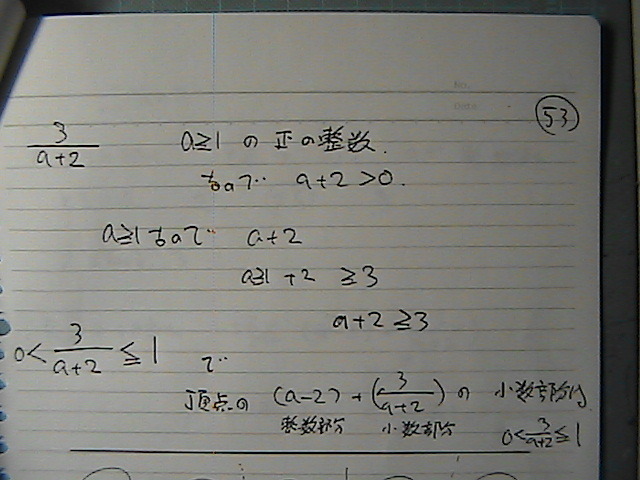 No.
Date
53
3/(a+2) a≥1 の 正の整数.
なので a+2>0.
a≥1 なので a+2
a≥1 +2 ≥3
a+2≥3
0<3/(a+2)≦1 で
頂点の (a-2)+(3/(a+2)) の 小数部分は
整数部分 小数部分 0<3/(a+2)≦1